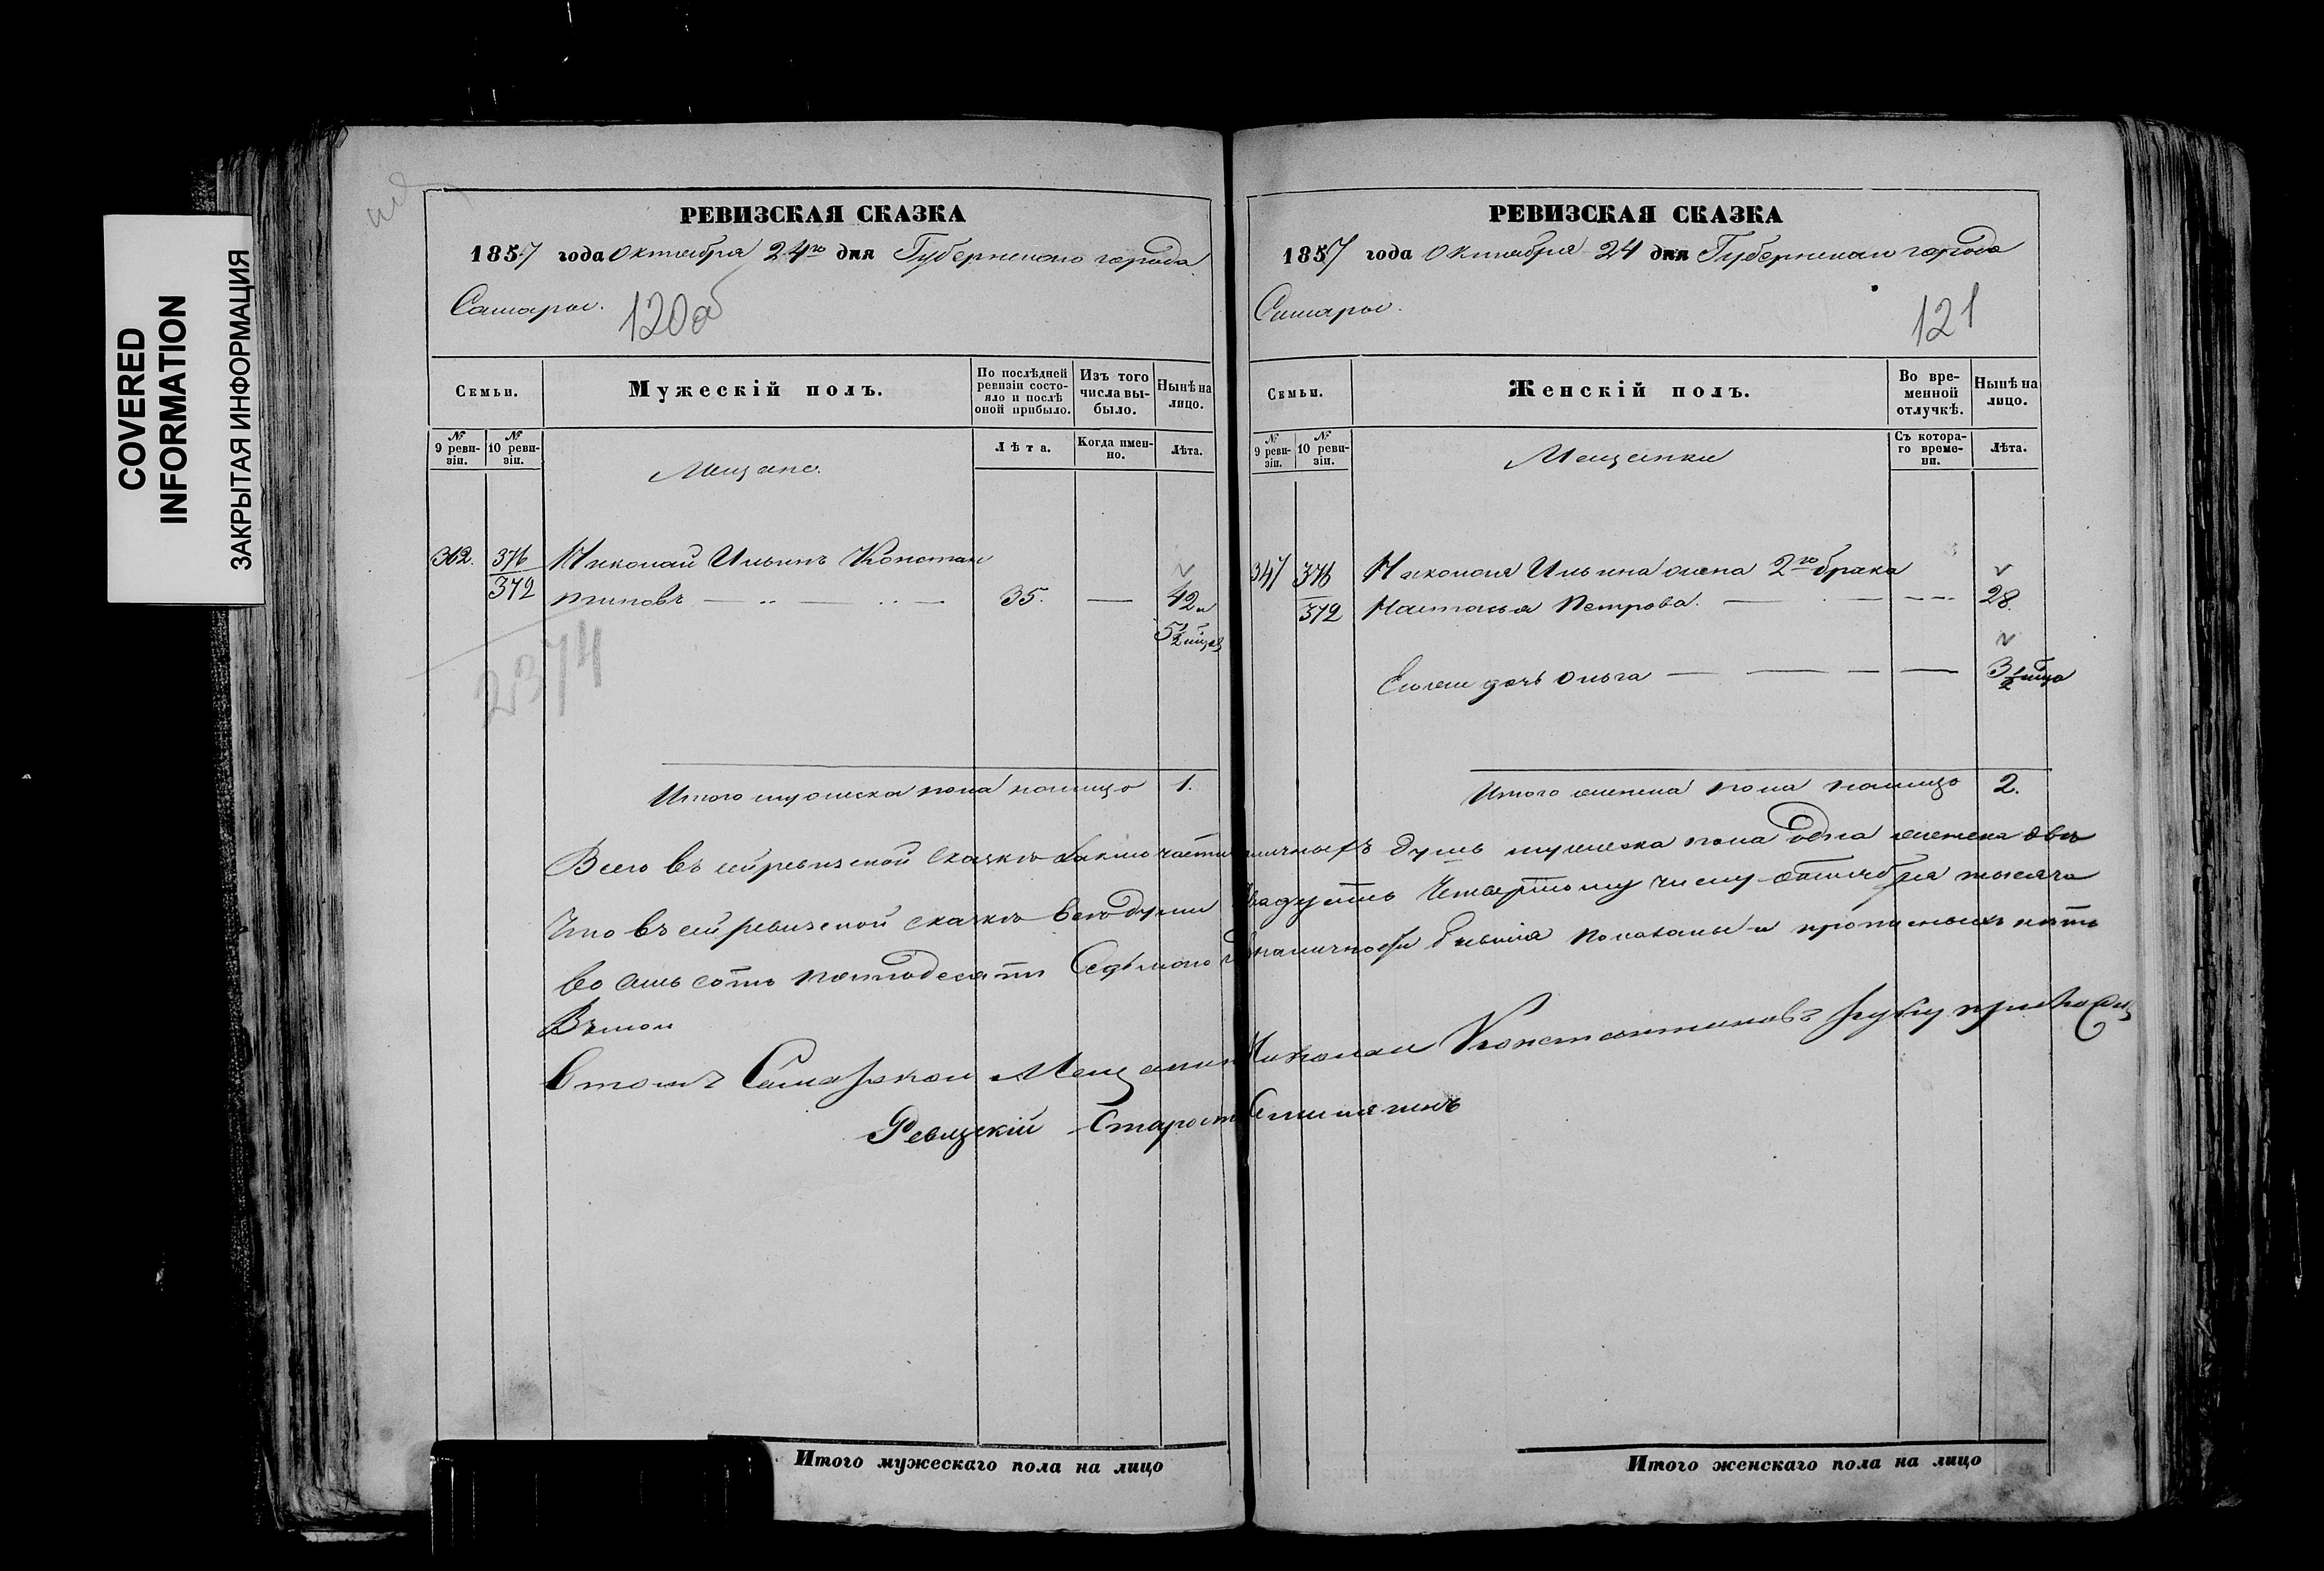 COVERED
INFORMATION
ЗАКРЫТАЯ ИНФОРМАЦИЯ
РЕВИЗСКАЯ СКАЗКА
1857 года Октября 24го дня Губернскаго города
Самары.
120об
Семьи.
Мужескій полъ.
По послѣдней ревизіи состояло и послѣ оной прибыло.
Изъ того числа выбыло.
Нынѣ на лицо.
№ 9 ревизіи.
№ 10 ревизіи.
Мещане.
Лѣта.
Когда именно.
Лѣта.
362. 376 Николай Ильинъ Констан
372 тиновъ 35. — 42 и
5½ мѣся
2374
Итого мужеска пола налицо 1.
РЕВИЗСКАЯ СКАЗКА
1857 года Октября 24 дня Губернскаго города
Самары.
121
Семьи.
Женскій полъ.
Во временной отлучкѣ.
Нынѣ на лицо.
№ 9 ревизіи.
№ 10 ревизіи.
Мещанки
Съ котораго времени.
Лѣта.
347 376 Николая Ильина жена 2го брака
372 Настасья Петрова. 28.
дочь Ольга 3½ мѣся
Итого женска пола налицо 2.
Всего въ сей ревизской сказкѣ наличныхъ душъ мужеска пола одна женска двѣ
Что въ сей ревизской сказкѣ всѣ души двадцать четвертому числу октября тысяча
во семь сотъ пятьдесятъ седьмого наличности показаны и прописныхъ нѣтъ
Въ томъ
Въ томъ Самарской Мещанинъ Николай Константиновъ руку приложилъ
Ревизскій Староста
Итого мужескаго пола на лицо
Итого женскаго пола на лицо